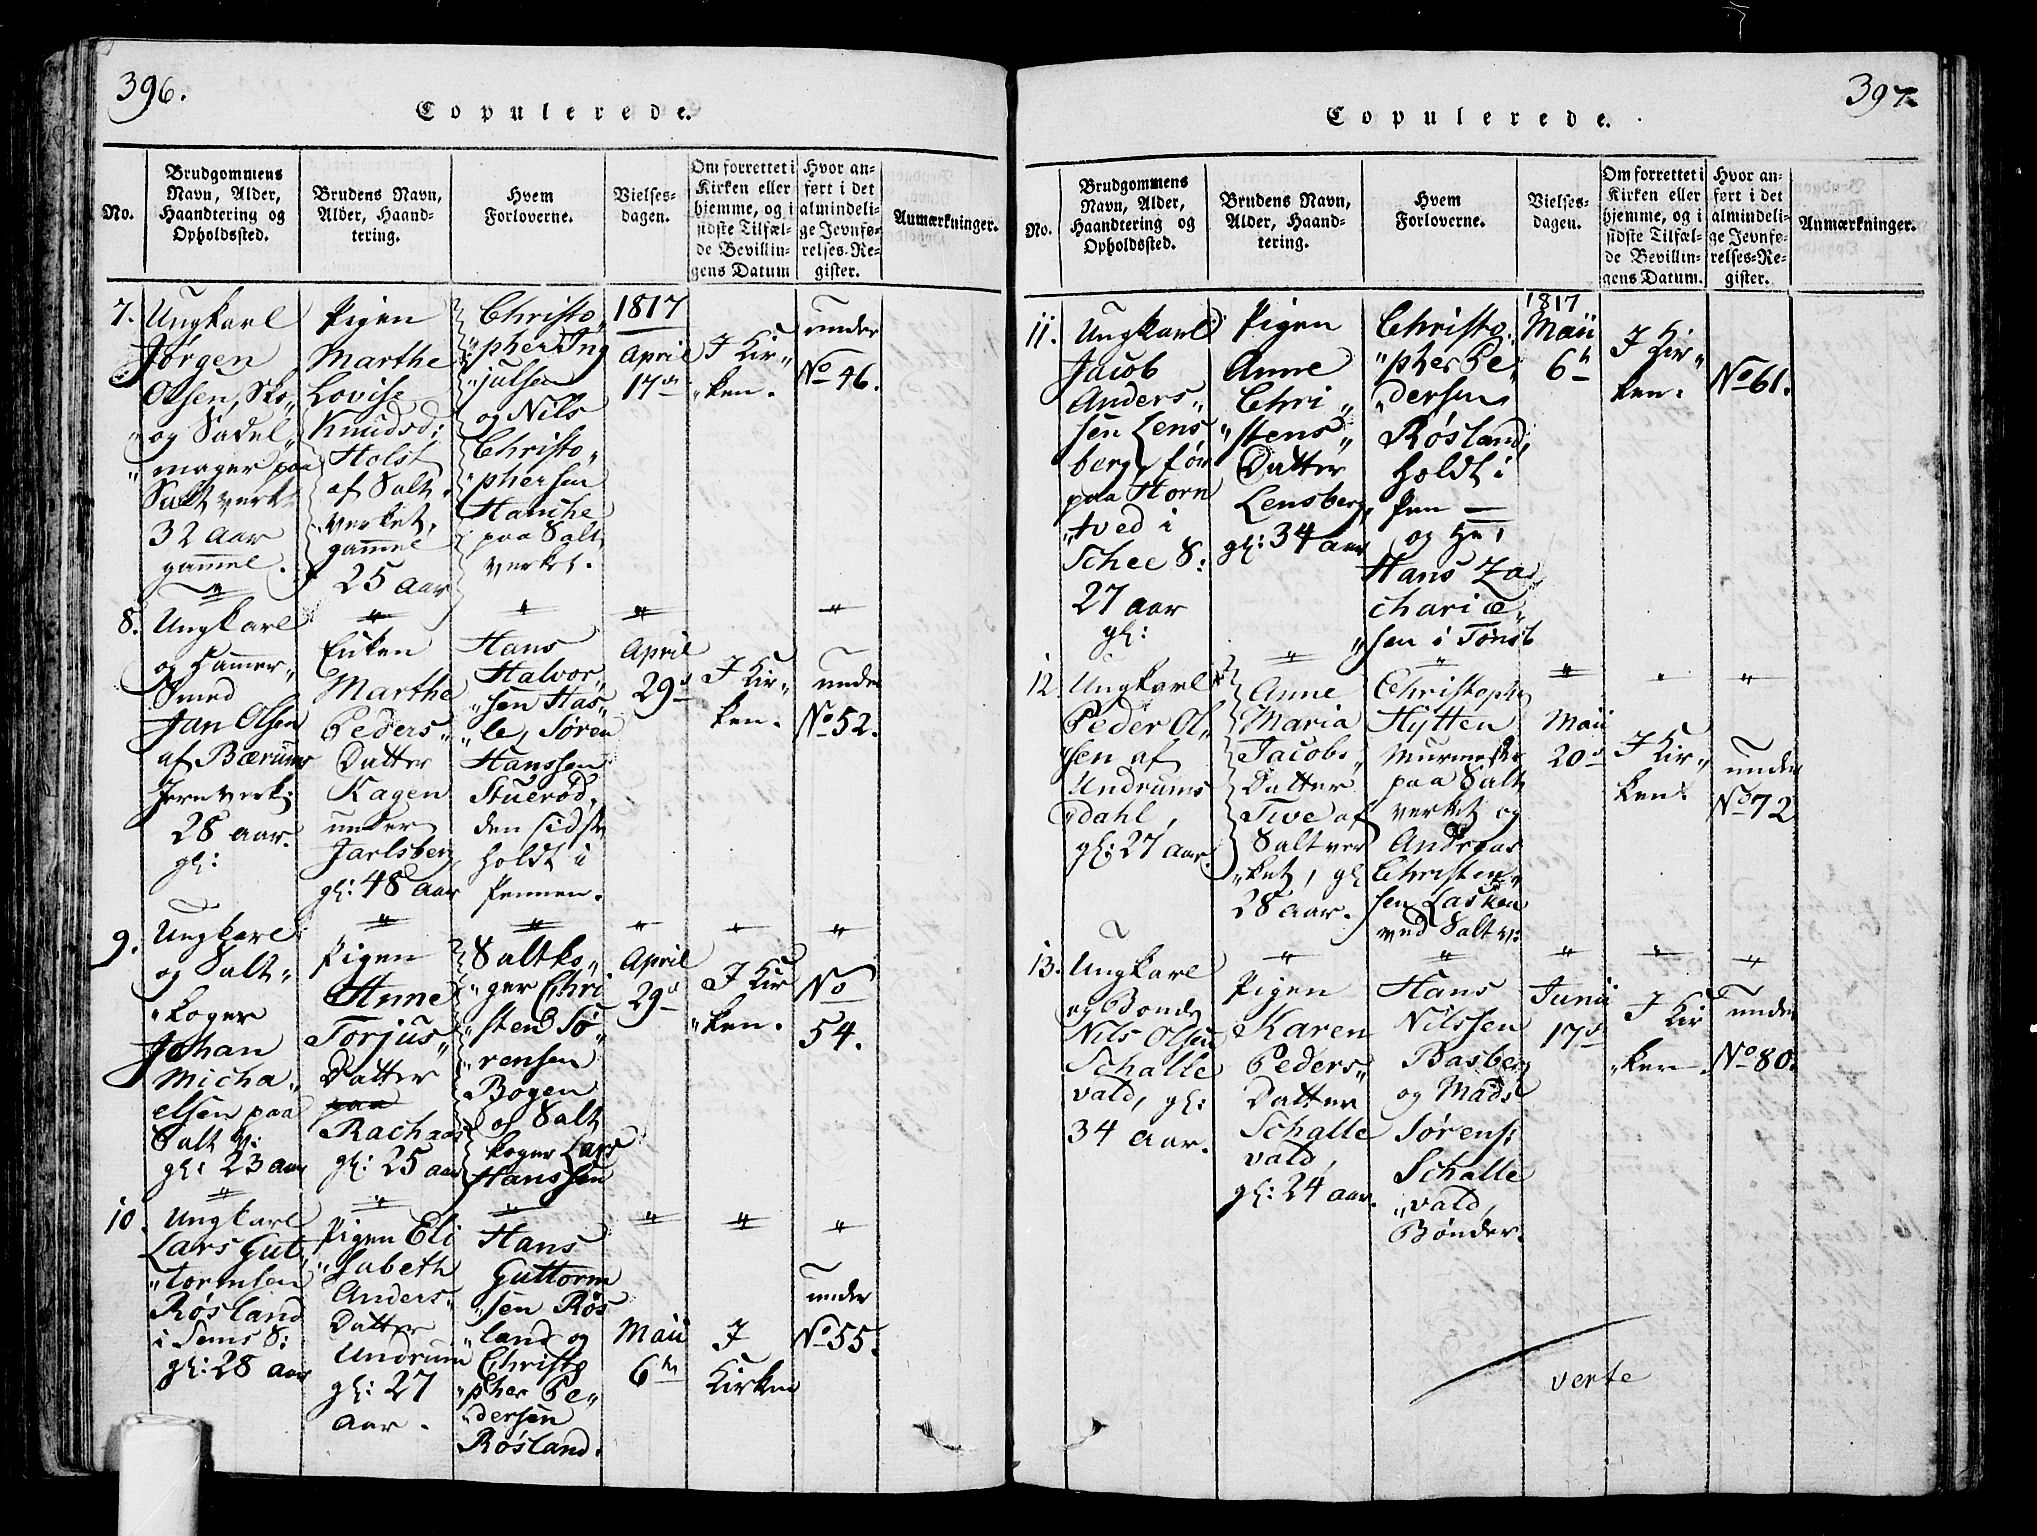 396.
Copulerede.
No.
Brudgommens
Navn, Alder,
Haandtering og
Opholdssted.
Brudens Navn,
Alder, Haand-
tering.
Hvem
Forloverne.
Vielses-
dagen.
Om forrettet i
Kirken eller
hjemme, og i
sidste Tilfæl-
de Bevillin-
gens Datum
Hvor an-
ført i det
almindeli-
ge Jevnfø-
relses-Re-
gister.
Anmærkninger.
7.
Ungkarl
Jørgen
Olsen, Sko„
„og Sadel„
„mager paa
Saltverk:
32 aar
gammel.
Pigen
Marthe
Lovise
Knudsd:
Holst
af Salt„
verket,
gammel
25 aar
Christo„
„pher Ing
„julsen
og Nils
Christo„
„phersen
Hauche
paa Salt
verket.
1817
April
17de
I Kir„
„ken.
under
No 46.
8.
Ungkarl
og Hammer„
Smed
Jan Olsen
af Bærums
Jernverk:
28 aar.
gl:
Enken
Marthe
Peders„
Datter
Kagen
under
Jarlsberg
gl: 48 aar
Hans
Halvor„
„sen Has„
„le, Søren
Hanssen
Stuerød,
den sidste
holdt i
Pennen.
April
29d
I Kir„
ken.
under
No 52.
9.
Ungkarl
og Salt„
„koger
Johan
Micha„
elsen paa
Salt v:
gl: 23 aar
Pigen
Anne
Torjus„
Datter
paa
Rachaas
gl: 25 aar
Saltko„
„ger Chri
„sten Sø„
„rensen
Bogen
og Salt
koger Lars
Hanssen
April
29d
I Kir
„ken.
No
54.
10.
Ungkarl
Lars Gut„
„tormsen
Røsland
i Sems S:
gl: 28 aar
Pigen Eli
„sabeth
Anders„
Datter
Undrum
gl: 27
aar.
Hans
Guttorm
„sen Røs
„land og
Christo
„pher Pe„
„dersen
Røsland.
Maii
6te
I
Kirken
under
No 55.
397
Copulerede.
No.
Brudgommens
Navn, Alder,
Haandtering og
Opholdssted.
Brudens Navn,
Alder, Haand-
tering.
Hvem
Forloverne.
Vielses-
dagen.
Om forrettet i
Kirken eller
hjemme, og i
sidste Tilfæl-
de Bevillin-
gens Datum.
Hvor an-
ført i det
almindeli-
ge Jevnfø-
relses-Re-
gister.
Anmærkninger.
11.
Ungkarl
Jacob
Anders„
sen Lens
berg, før
paa Horn
„tved i
Schee S:
27 aar
gl:
Pigen
Anne
Chri„
„stens„
Datter
Lensberg,
gl: 34 aar
Christo„
„pher Pe„
„dersen
Røsland,
holdt i
Pen —
og
Hans Za„
charia„
„sen i Tønsb
1817
Maii
6te
I Kir„
ken.
No 61.
12
Ungkarl
Peder Ol„
„sen af
Undrums
„dahl,
gl: 27 aar.
Anne
Maria
Jacobs„
Datter
Tive af
Saltver
„ket, gl
28 aar.
Christopher
Hytten
Murmester
paa Salt
verket og
Andreas
Christen„
sen Lasken
ved Salt v:
Maii
20d
I Kir„
ken.
under
No 72
13.
Ungkarl
og Bonde
Nils Olsen
Schalle
vald, gl:
34 aar.
Pigen
Karen
Peders„
Datter
Schalle
vald,
gl: 24 aar.
Hans
Nilssen
Basberg
og Mads
Sørens:
Schalle
„vald,
Bønder.
Junii
17d
I Kir
„ken.
under
No 80.
verte